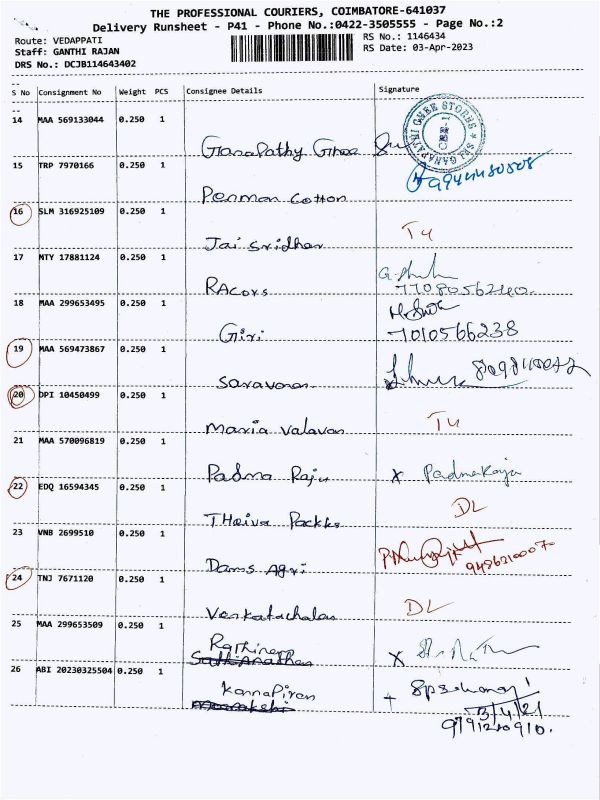 THE PROFESSIONAL COURIERS, COIMBATORE-641037
Delivery Runsheet - P41 - Phone No.:0422-3505555 - Page No.:2
Route: VEDAPPATI
RS No.: 1146434
Staff: GANTHI RAJAN
RS Date: 03-Apr-2023
DRS No.: DCJB114643402
S No Consignment No Weight PCS Consignee Details Signature
14 MAA 569133044 0.250 1
Ganapathy Ghee
SRI GANAPATHI GHEE STORES
15 TRP 7970166 0.250 1
Penman Cotton
16 SLM 316925109 0.250 1
Jai Sridhar
17 MTY 17881124 0.250 1
RAcors 7708056240.
18 MAA 299653495 0.250 1
Giri 7010566238
19 MAA 569473867 0.250 1
Saravanan
20 DPI 10450499 0.250 1
Maria Valavan
21 MAA 570096819 0.250 1
Padma Raju x Padmaraja
22 EDQ 16594345 0.250 1
DL
Theiva Packks
23 VNB 2699510 0.250 1
Dams Agri 9456210007
24 TNJ 7671120 0.250 1
DL
Venkatachalan
25 MAA 299653509 0.250 1
Rathinam x
26 ABI 20230325504 0.250 1
KannaPiran
3/4/21
9791210910.